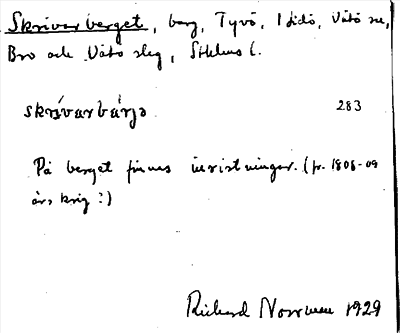 Skrivarberget, berg, Tyvö, Idö, Vätö sn,
Bro och Vätö slg, Sthlms l.
skrívarbárjə 283
På berget finnes inristningar. (fr. 1808-09
års krig?)
Richard Norrman 1929